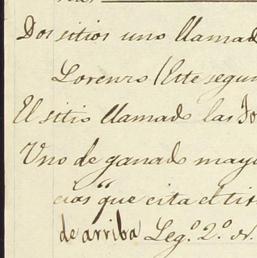 Dos sitios uno llamad
Lorenzo (Este segun
El sitio llamado las Jo
Uno de ganado mayo
cias" que cita el tit
de arriba Leg.º 2.º N.